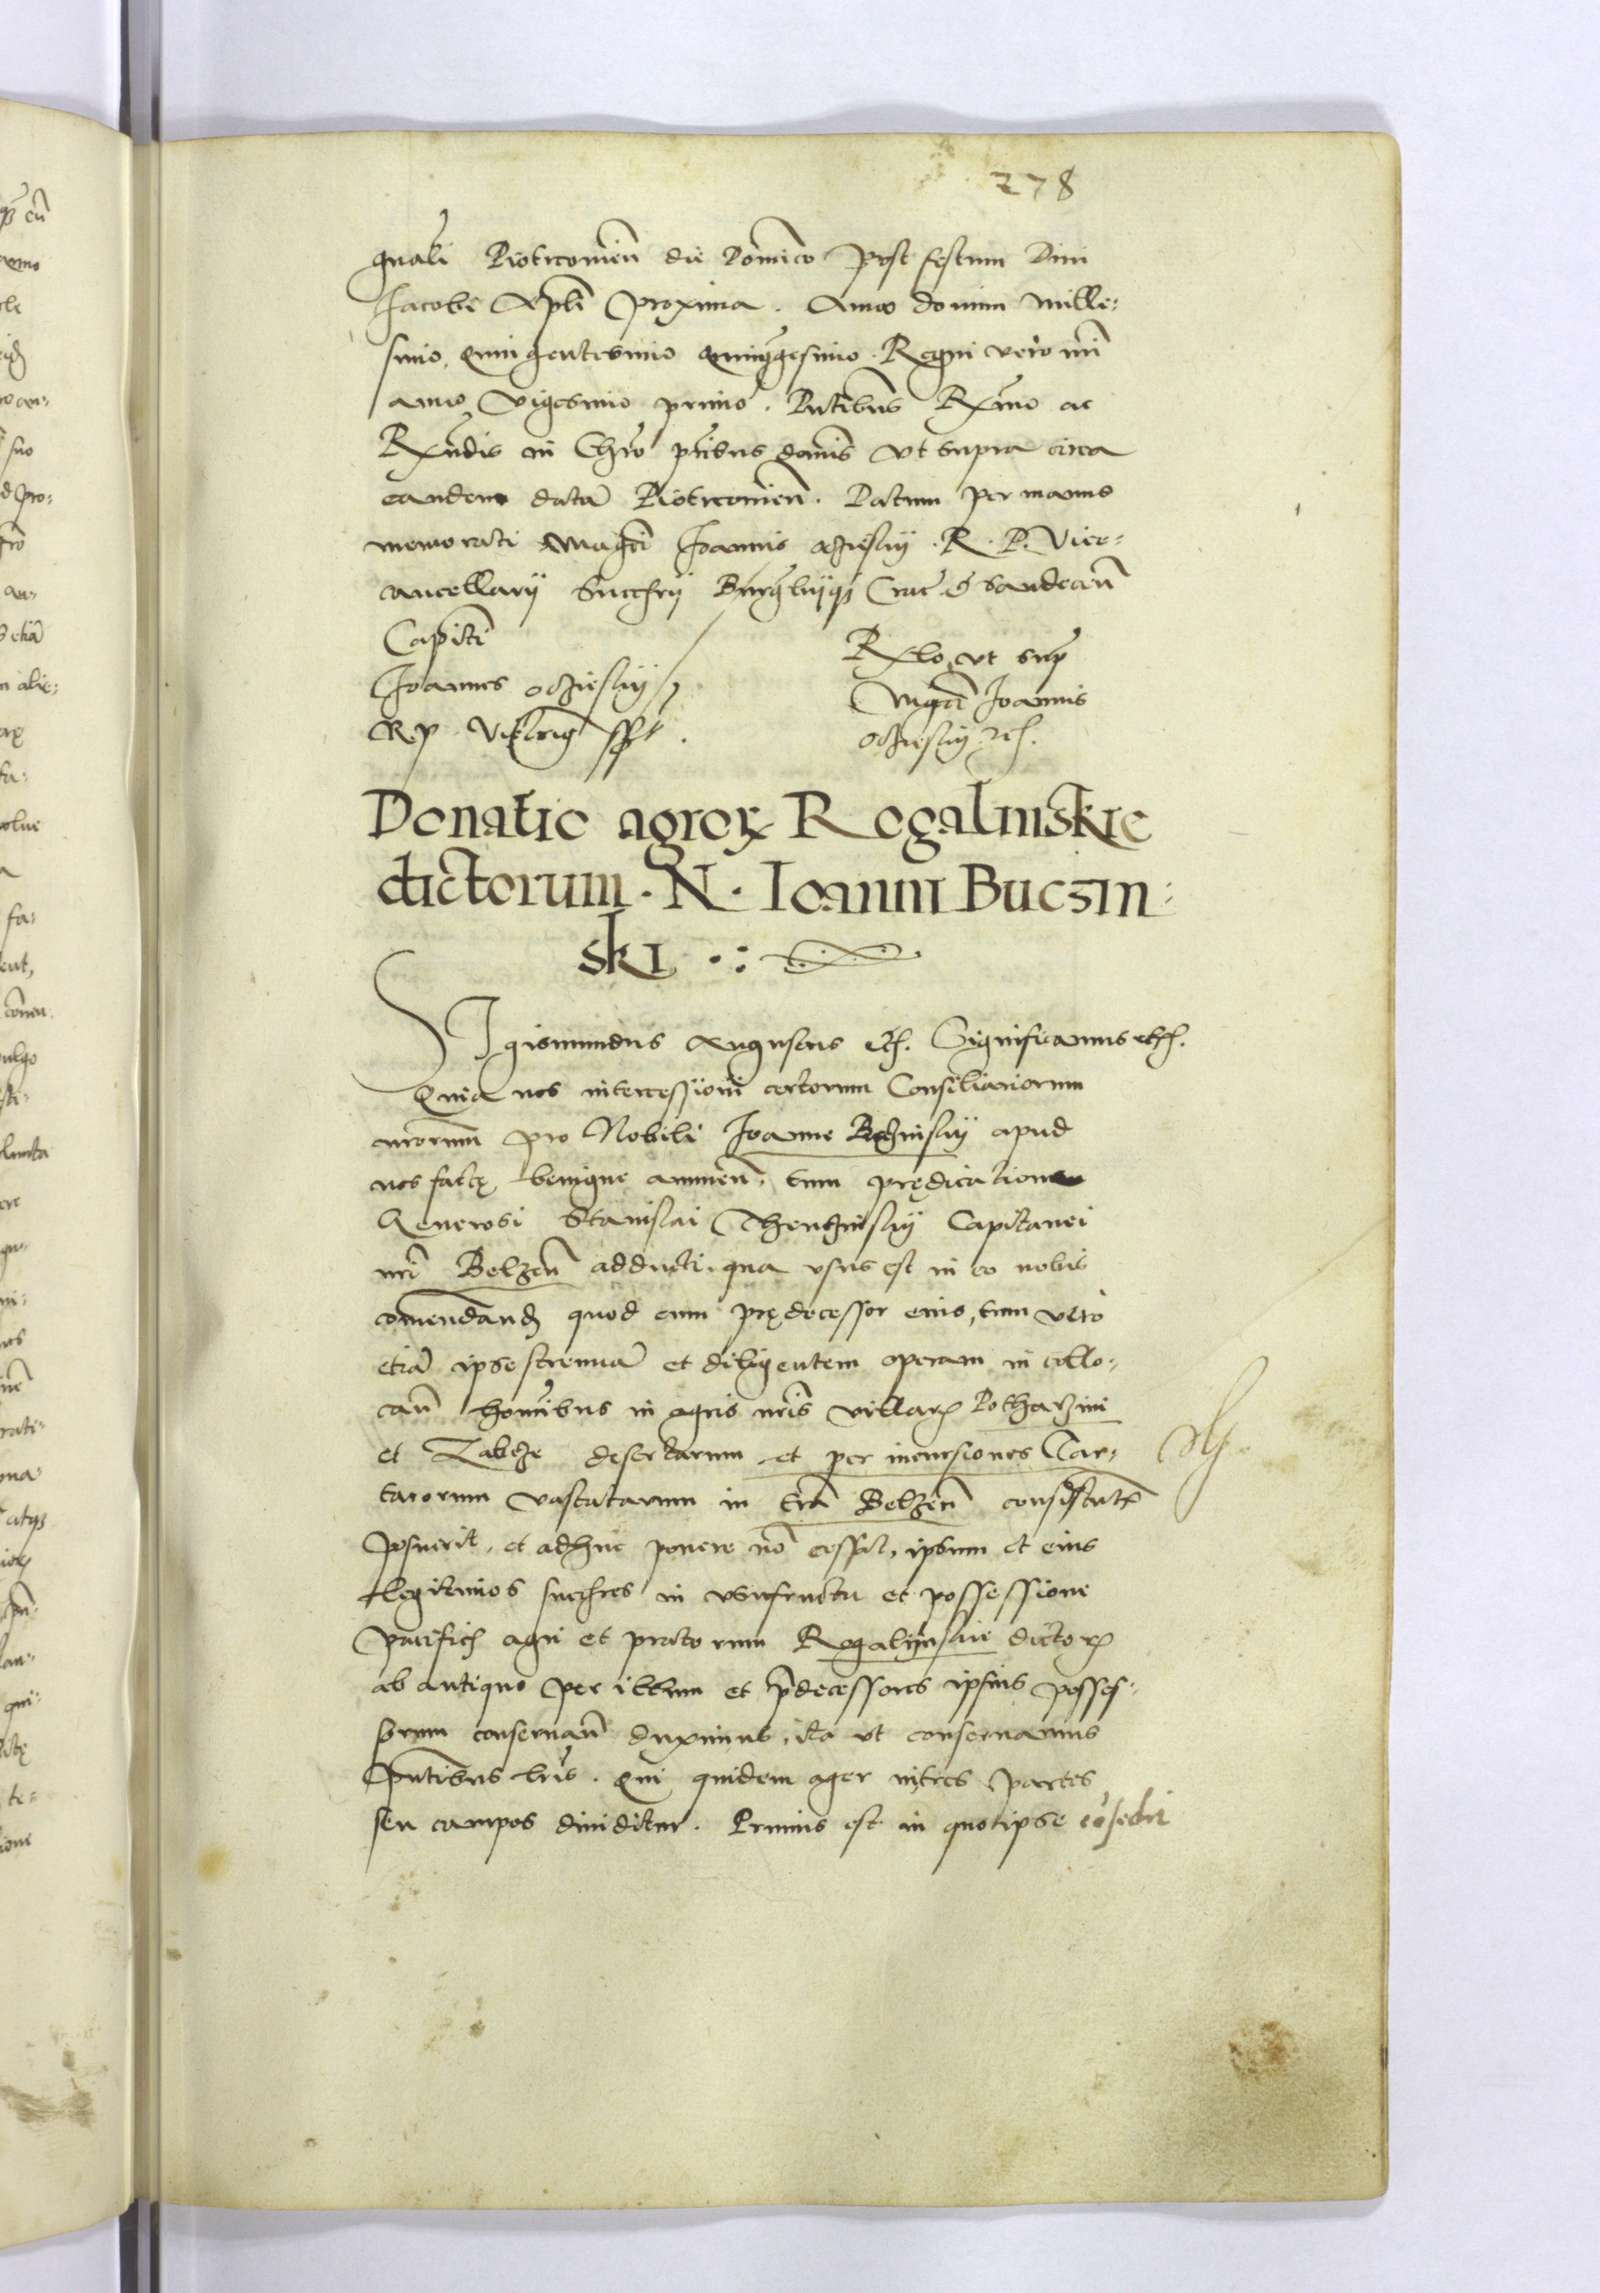 278
gnali Piotrcovien̄ die Dominico post festum Diui
Iacobi Apl̄i proxima. Anno domini mille-
simo, Quingentesimo quinqgesimo. Regni vero nr̄i
anno vigesimo primo. Pn̄tibus Rx̄mo ac
Rx̄ndis in Chr̄o pr̄ibus domīs vt supra circa
eandem datā Piotrcovien̄. Datum per manus
memorati Maḡci Ioannis oczieskij. R. P. Vice-
cancellarij Succ̄rij Burḡbijqȝ Crac̄ & Sandecen̄
Capitēi
Ioannes oczieskij
R. p. Vic̄
Rx̄lo vt supͣ
Mgc̄i Ioannis
oczieskij etc̄.
Donatio agroꝝ Rogalinskie
dictorum. N. Ioanni Buczin-
ski
Sigismundus Augustus etc̄. Significamus etc̄.
Quia nos intercessioni certorum Consiliariorum
nrorum̄ pro Nobili Ioanne Bvczinskij apud
nos factę benigne annuen̄. tum prędicatione
Generosi Stanislai Thenczinskij Capitanei
nr̄i Belzen̄ adducti, qua vsus est in eo nobis
com̄endandͦ quod cum prędecessor eius, tum vero
etiā ipse strenuā et diligentem operam in collo-
can̄ hom̄ibus in agris nr̄is villarꝝ Potharzini
et Zabcze desertarum et per incursiones Tar-
tarorum vastatarum in tr̄a Belzen̄ consisten̄t
posuerit, et adhuc ponere nō cessat, ipsum et eius
legitimos succ̄res in vsufructu et possessione
pacifica agri et pratorum Rogalijnskie dictoꝝ
ab antiquo per illum et p̄decessores ipsius posses-
sorum conseruan̄ duximus, ita vt conseruamus
pn̄tibus lr̄is. Qui quidem ager in tres partes
seu campos diuiditur. Primus est in quo ipse cōsedit